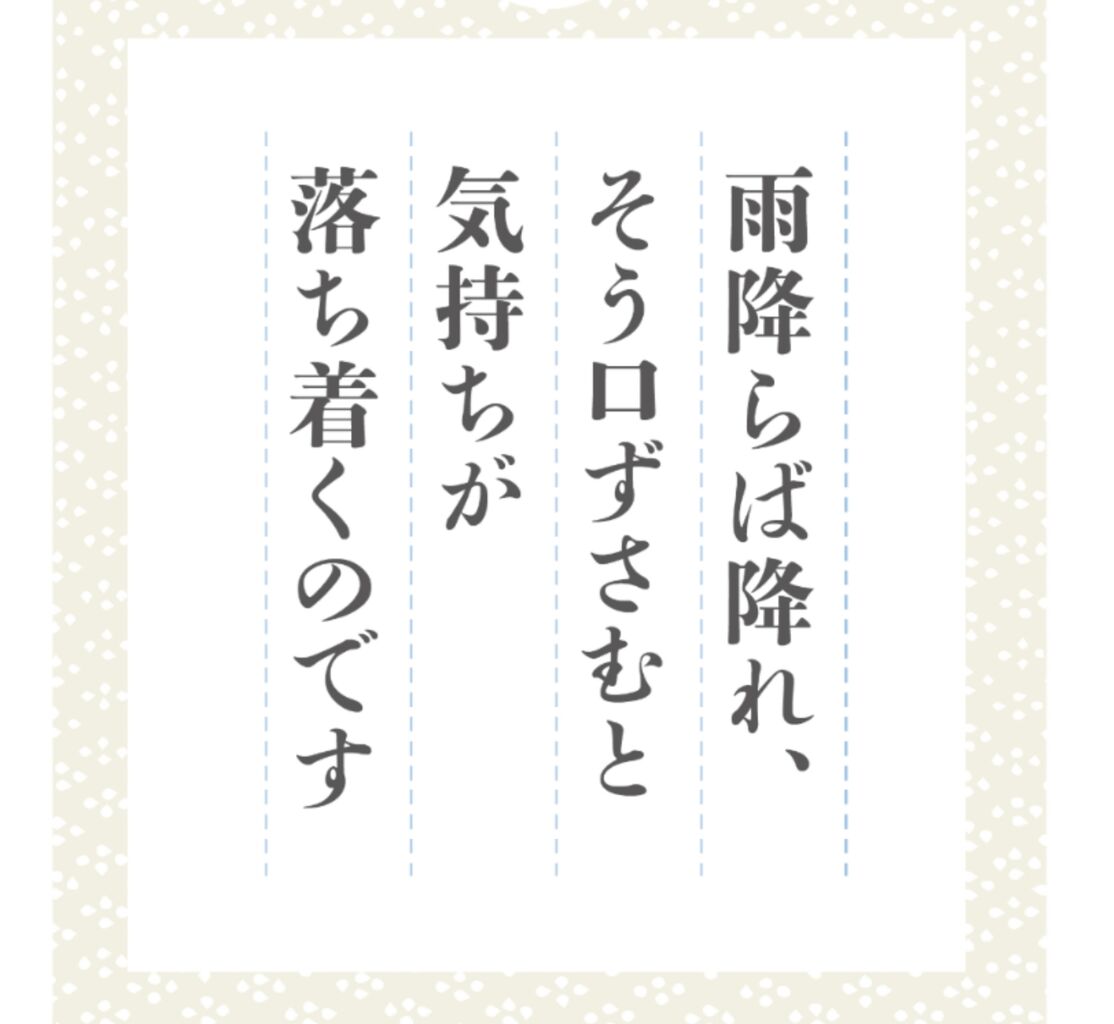 雨降らば降れ、
そう口ずさむと
気持ちが
落ち着くのです